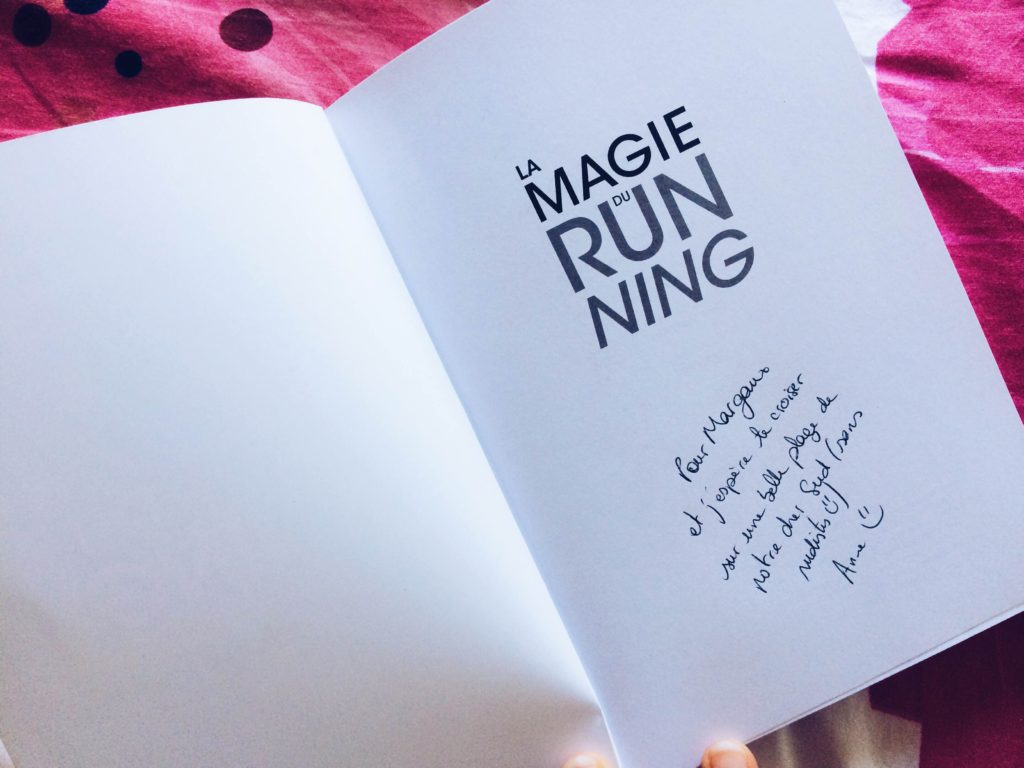 LA
MAGIE
DU
RUN
NING
Pour Margaux
et j'espère te croiser
sur une belle plage de
notre cher Sud (sans
nudistes :)
Anne :)